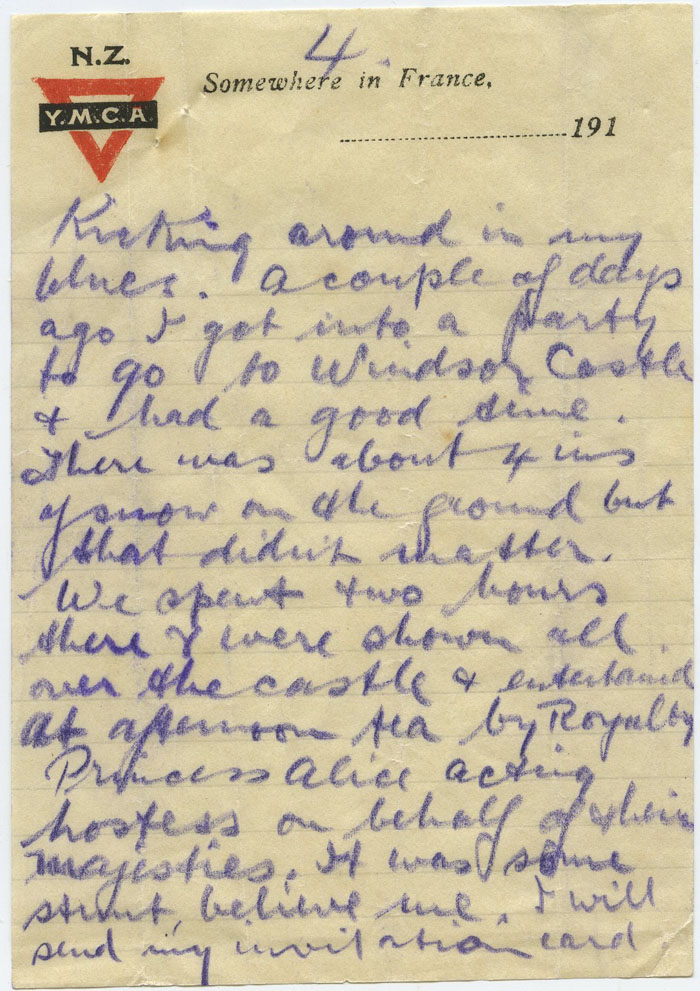 4
N.Z.
Y.M.C.A.
Somewhere in France,
191
Kicking around in my
blues. A couple of days
ago I got into a party
to go to Windsor Castle
& had a good time.
There was about 4 ins
of snow on the ground but
that didn't matter.
We spent two hours
there & were shown all
over the castle & entertained
at afternoon tea by Royalty
Princess Alice acting
hostess on behalf of their
majesties. It was some
stunt, believe me. I will
send my invitation card